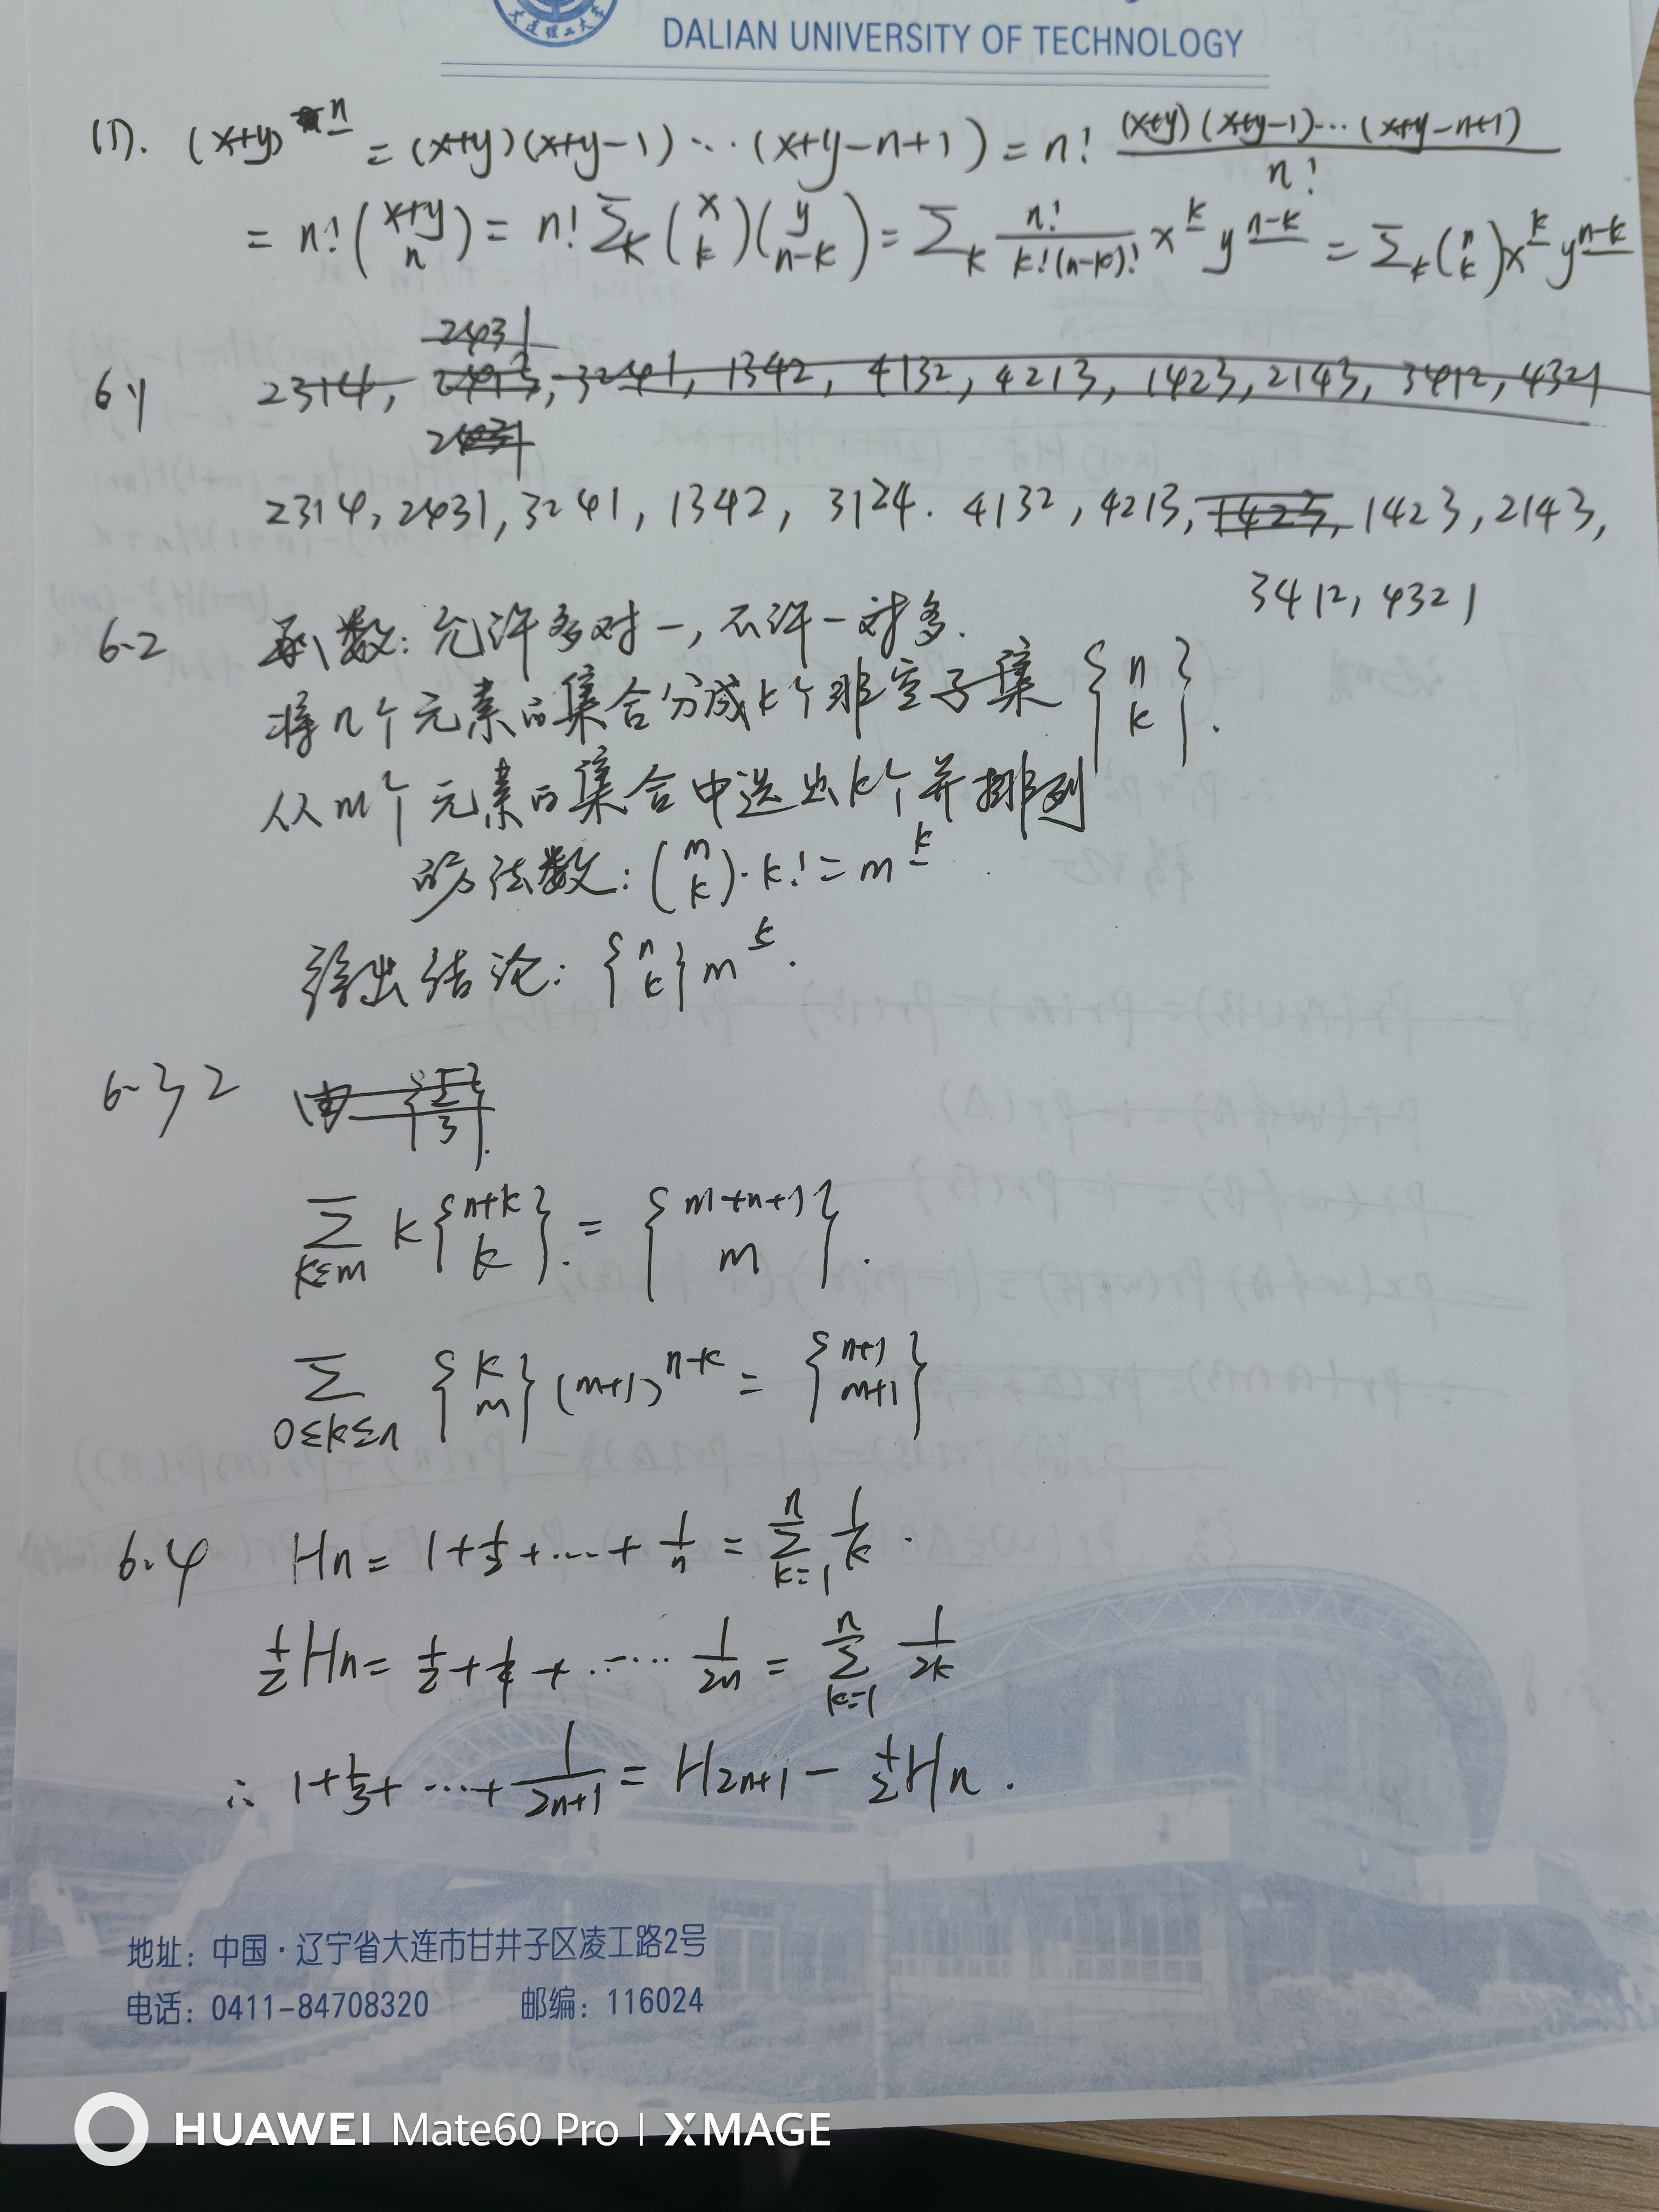 DALIAN UNIVERSITY OF TECHNOLOGY
(1). (x+y)^{\underline{n}} = (x+y)(x+y-1)⋯(x+y-n+1) = n! \frac{(x+y)(x+y-1)⋯(x+y-n+1)}{n!}
= n! \binom{x+y}{n} = n! Σ_k \binom{x}{k}\binom{y}{n-k} = Σ_k \frac{n!}{k!(n-k)!} x^{\underline{k}} y^{\underline{n-k}} = Σ_k \binom{n}{k} x^{\underline{k}} y^{\underline{n-k}}
2431
6.1 2314, 3241, 1342, 4132, 4213, 1423, 2143, 3412, 4321
2314, 2431, 3241, 1342, 3124. 4132, 4213, 1423, 1423, 2143,
3412, 4321
6.2 数: 允许多对一, 不许一对多.
将n个元素的集合分成k个非空子集 {n \brace k}.
从m个元素的集合中选出k个并排列
的方法数: \binom{m}{k}·k! = m^{\underline{k}}
得出结论: {n \brace k} m^{\underline{k}}.
6.32 由
Σ_{k≤m} k {n+k \brace k}. = {m+n+1 \brace m}.
Σ_{0≤k≤n} {k \brace m} (m+1)^{n-k} = {n+1 \brace m+1}
6.4 Hn = 1+\frac{1}{2}+⋯+\frac{1}{n} = Σ_{k=1}^{n} \frac{1}{k}.
\frac{1}{2}Hn = \frac{1}{2}+\frac{1}{4}+⋯⋯\frac{1}{2n} = Σ_{k=1}^{n} \frac{1}{2k}
∴ 1+\frac{1}{3}+⋯+\frac{1}{2n+1} = H_{2n+1} - \frac{1}{2}Hn.
地址：中国·辽宁省大连市甘井子区凌工路2号
电话：0411-84708320 邮编：116024
HUAWEI Mate60 Pro | XMAGE